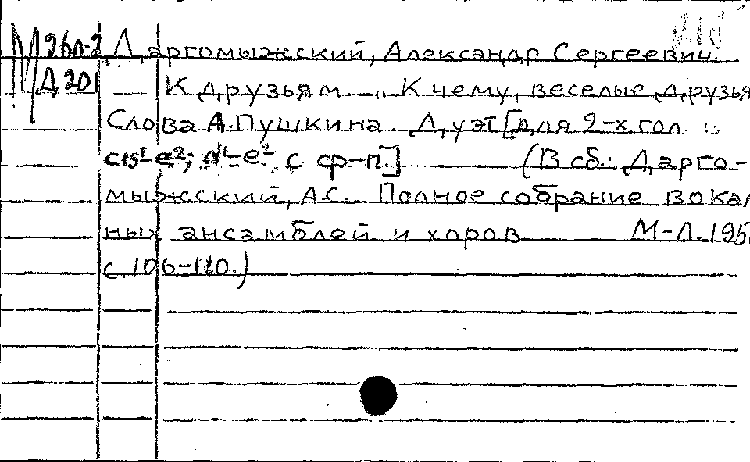 М 26л-2 Даргомыжский, Александр Сергеевич.
Д 201 К друзьям. „К чему, веселые друзья
Слова А.Пушкина. Дуэт [для 2-х гол.
cis¹-e²; a¹-e² с ф-п.] (В сб.: Дарго-
мыжский, А.С. Полное собрание вокал
ных ансамблей и хоров М-Л. 195
с. 106-110.)